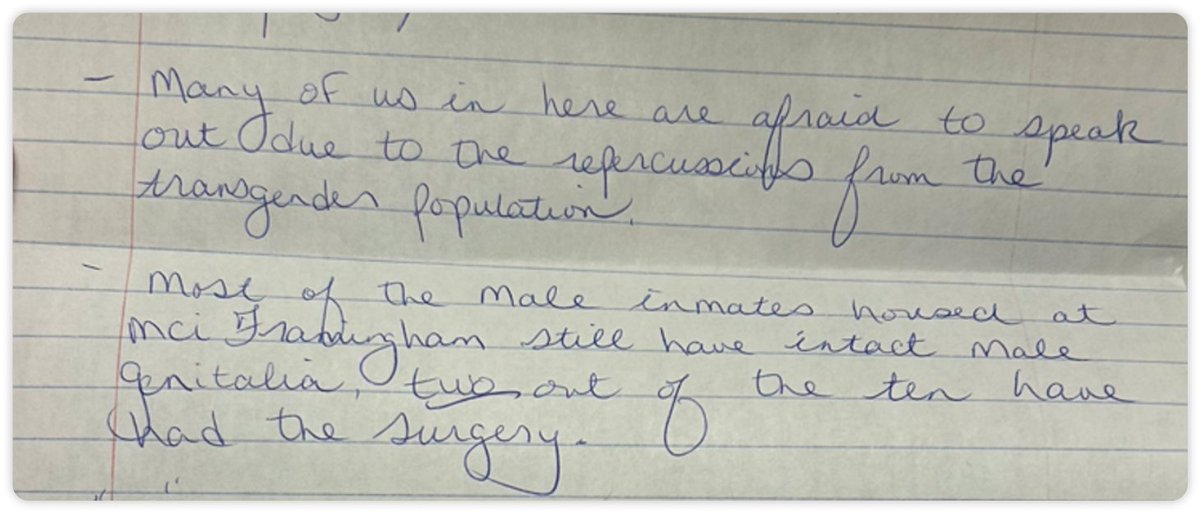 - Many of us in here are afraid to speak
out due to the repercussions from the
transgender population.
- Most of the male inmates housed at
MCI Framingham still have intact male
genitalia, two out of the ten have
had the surgery.